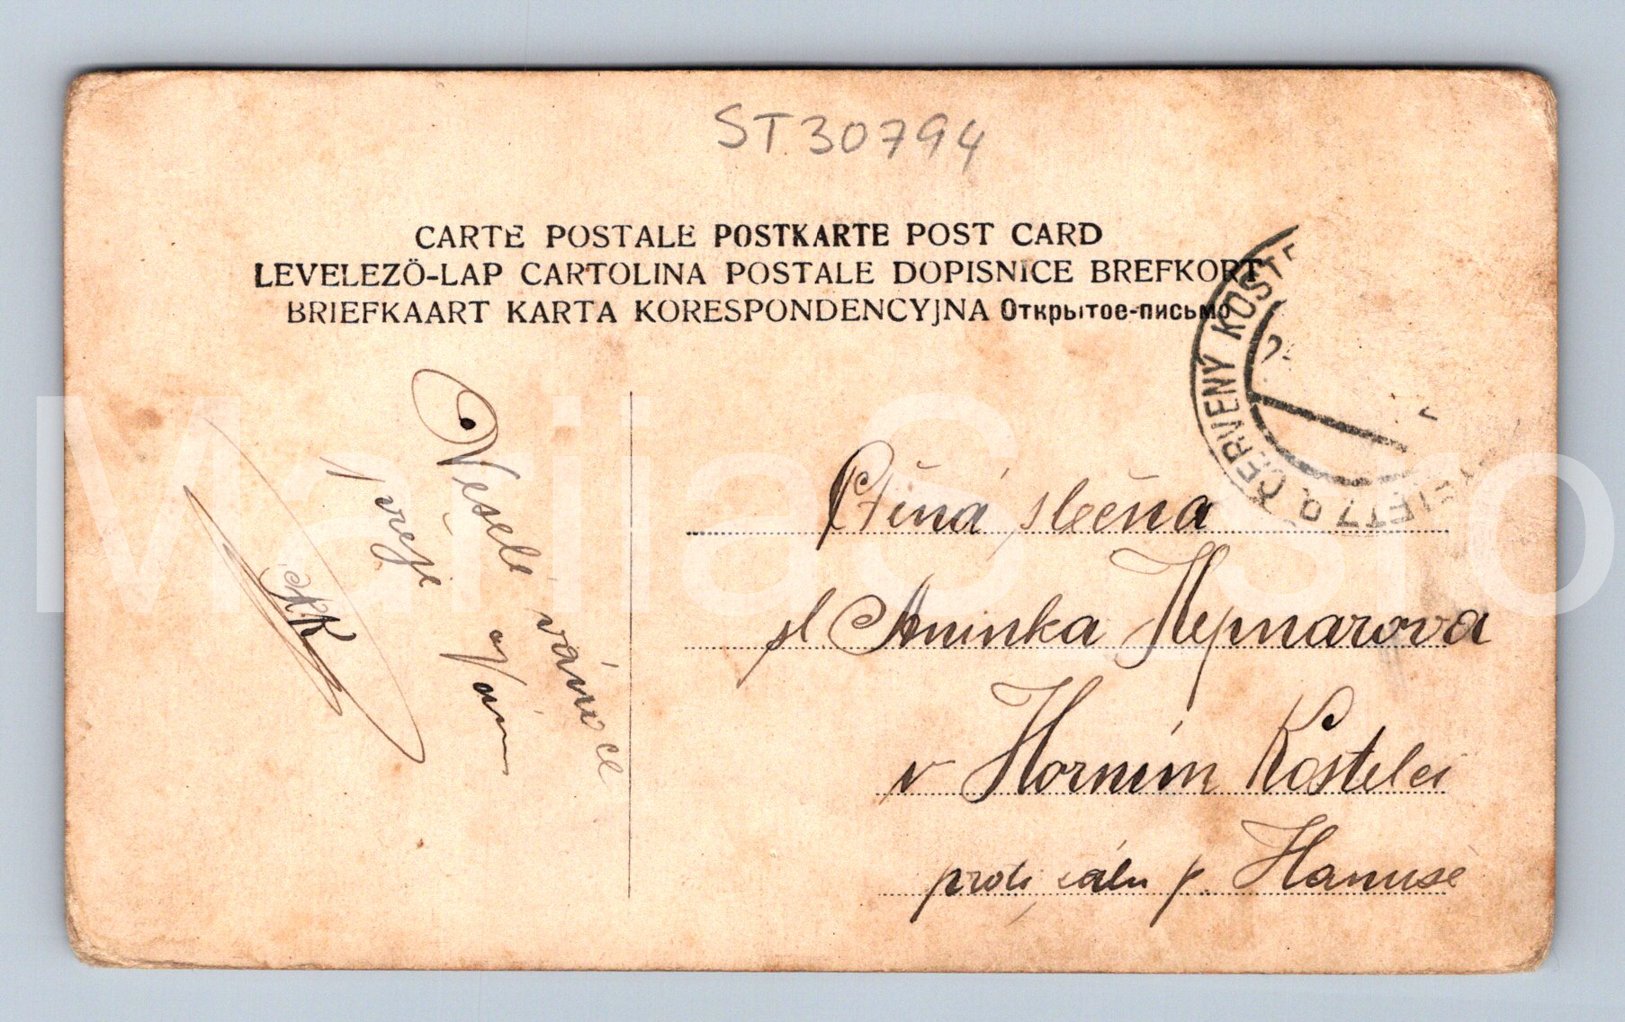 ST30794
CARTE POSTALE POSTKARTE POST CARD
LEVELEZÖ-LAP CARTOLINA POSTALE DOPISNICE BREFKORT
BRIEFKAART KARTA KORESPONDENCYJNA Открытое-письмо
ČERVENÝ KOSTE
Veselé vánoce
přeje
KK
Ctěná slečna
sl. Aninka
v Horním Kostelci
proti sálu p. Hanuše